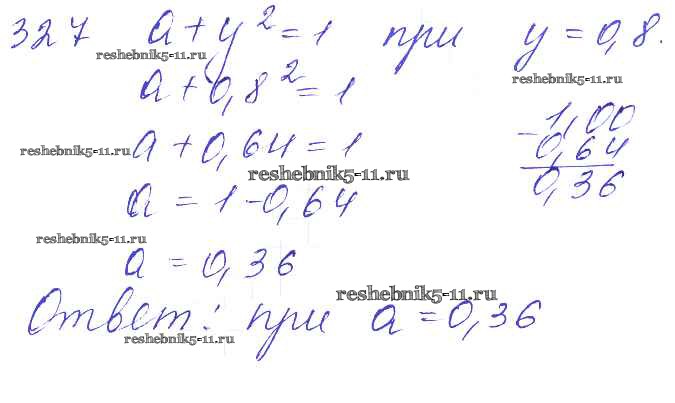 327 a + y² = 1 при y = 0,8.
reshebnik5-11.ru reshebnik5-11.ru
a + 0,8² = 1
reshebnik5-11.ru a + 0,64 = 1
reshebnik5-11.ru
a = 1 - 0,64
- 1,00
0,64
0,36
reshebnik5-11.ru
a = 0,36
reshebnik5-11.ru
Ответ: при a = 0,36
reshebnik5-11.ru